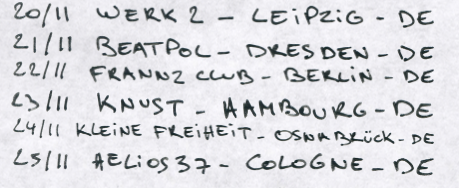 20/11 WERK 2 - LEiPZiG - DE
21/11 BEATPOL - DRESDEN - DE
22/11 FRANNZ CLUB - BERLiN - DE
23/11 KNUST - HAMBOURG - DE
24/11 KLEiNE FREiHEiT - OSNABRÜCK - DE
25/11 HELiOS 37 - COLOGNE - DE